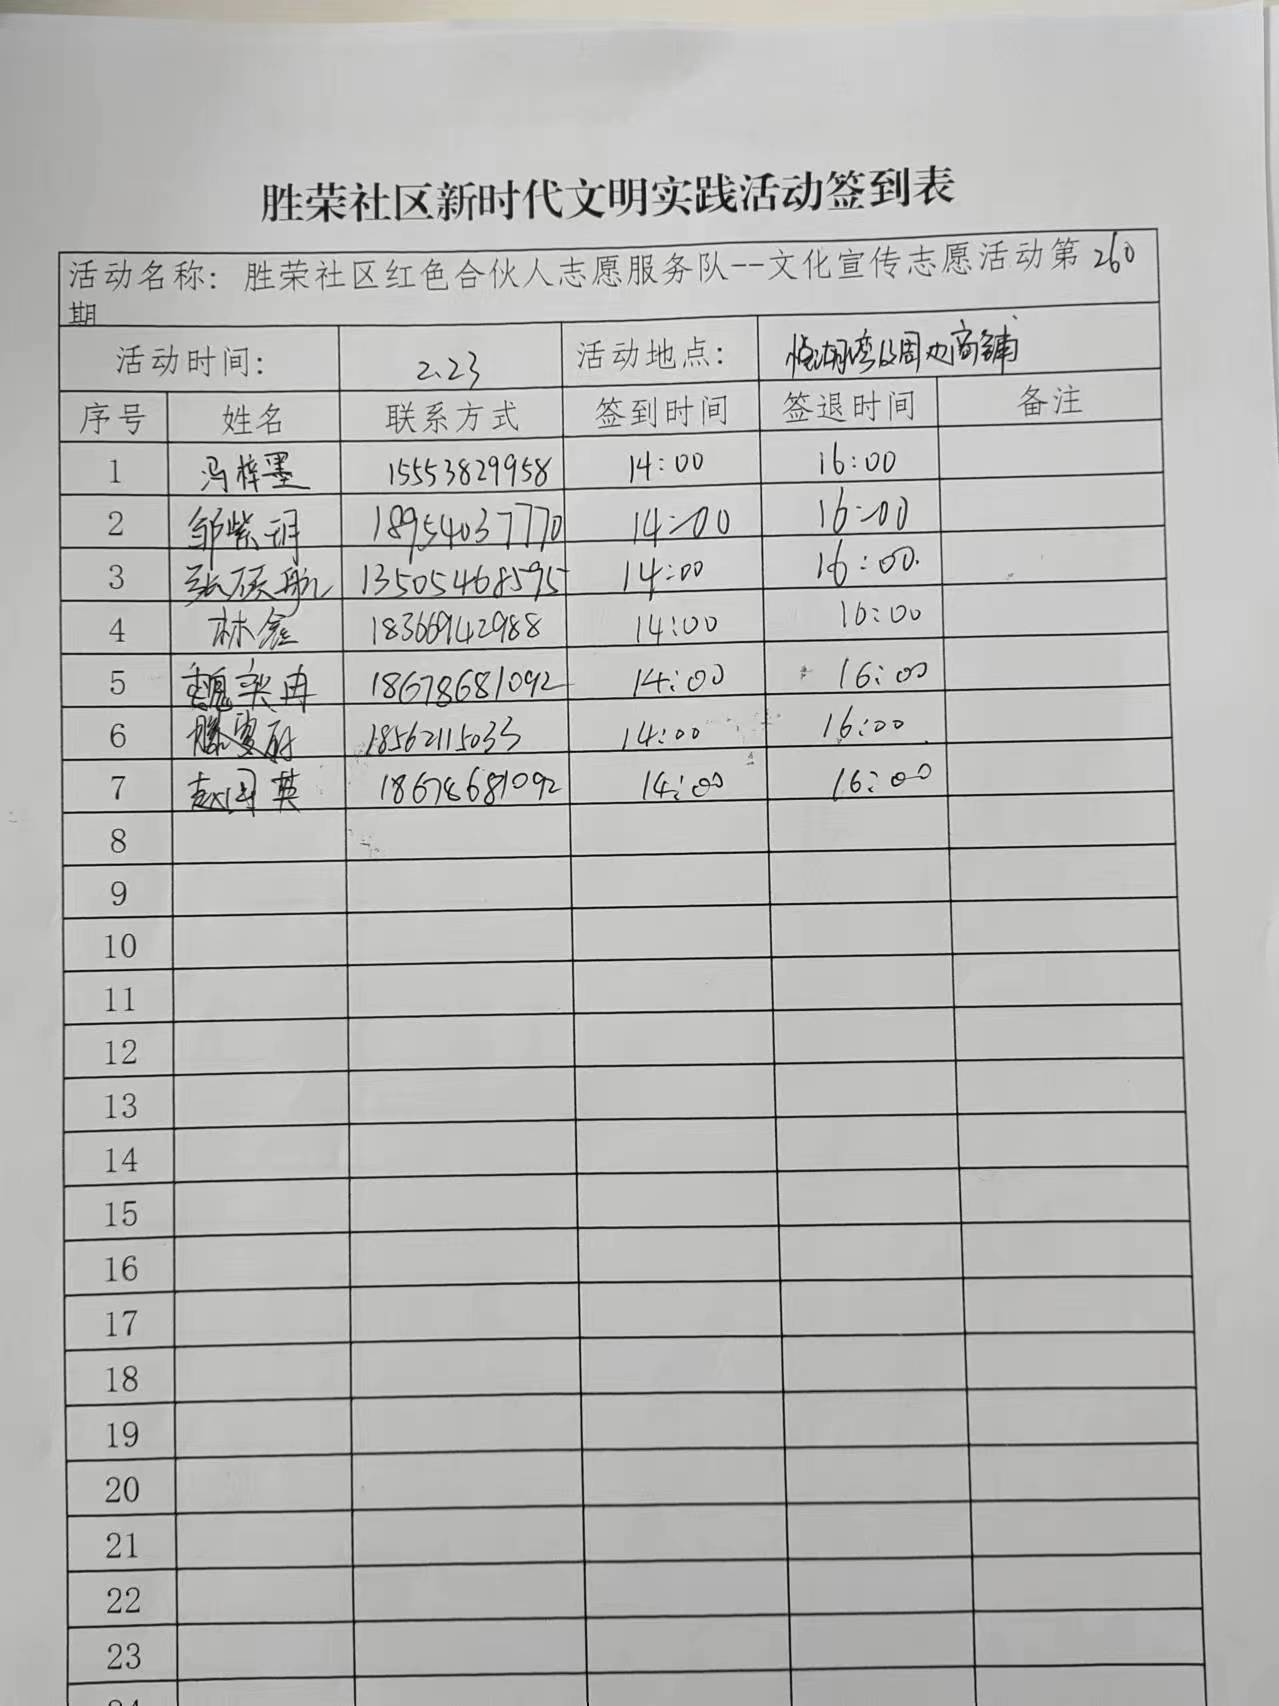 胜荣社区新时代文明实践活动签到表
活动名称：胜荣社区红色合伙人志愿服务队--文化宣传志愿活动第260
期
活动时间： 2.23 活动地点： 悦湖湾及周边商铺
序号 姓名 联系方式 签到时间 签退时间 备注
1 冯梓墨 15553829958 14:00 16:00
2 邹紫玥 18954037770 14:00 16:00
3 张 航 13505468595 14:00 16:00.
4 林鑫 18366942988 14:00 16:00
5 魏 冉 18678681092 14:00 16:00
6 滕 18562115033 14:00 16:00
7 赵国英 18678681092 14:00 16:00
8
9
10
11
12
13
14
15
16
17
18
19
20
21
22
23